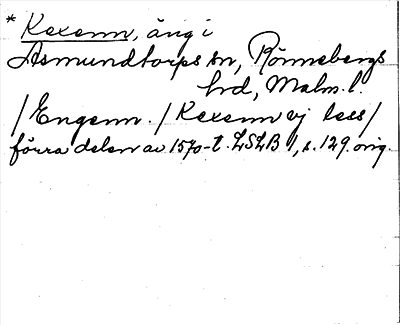 * Kexenn, äng i
Asmundtorps sn, Rönnebergs
hd, Malm. l.
/Engenn. / Kexenn ej less/
förra delen av 1570-t. LSLB 1, s. 129. orig.